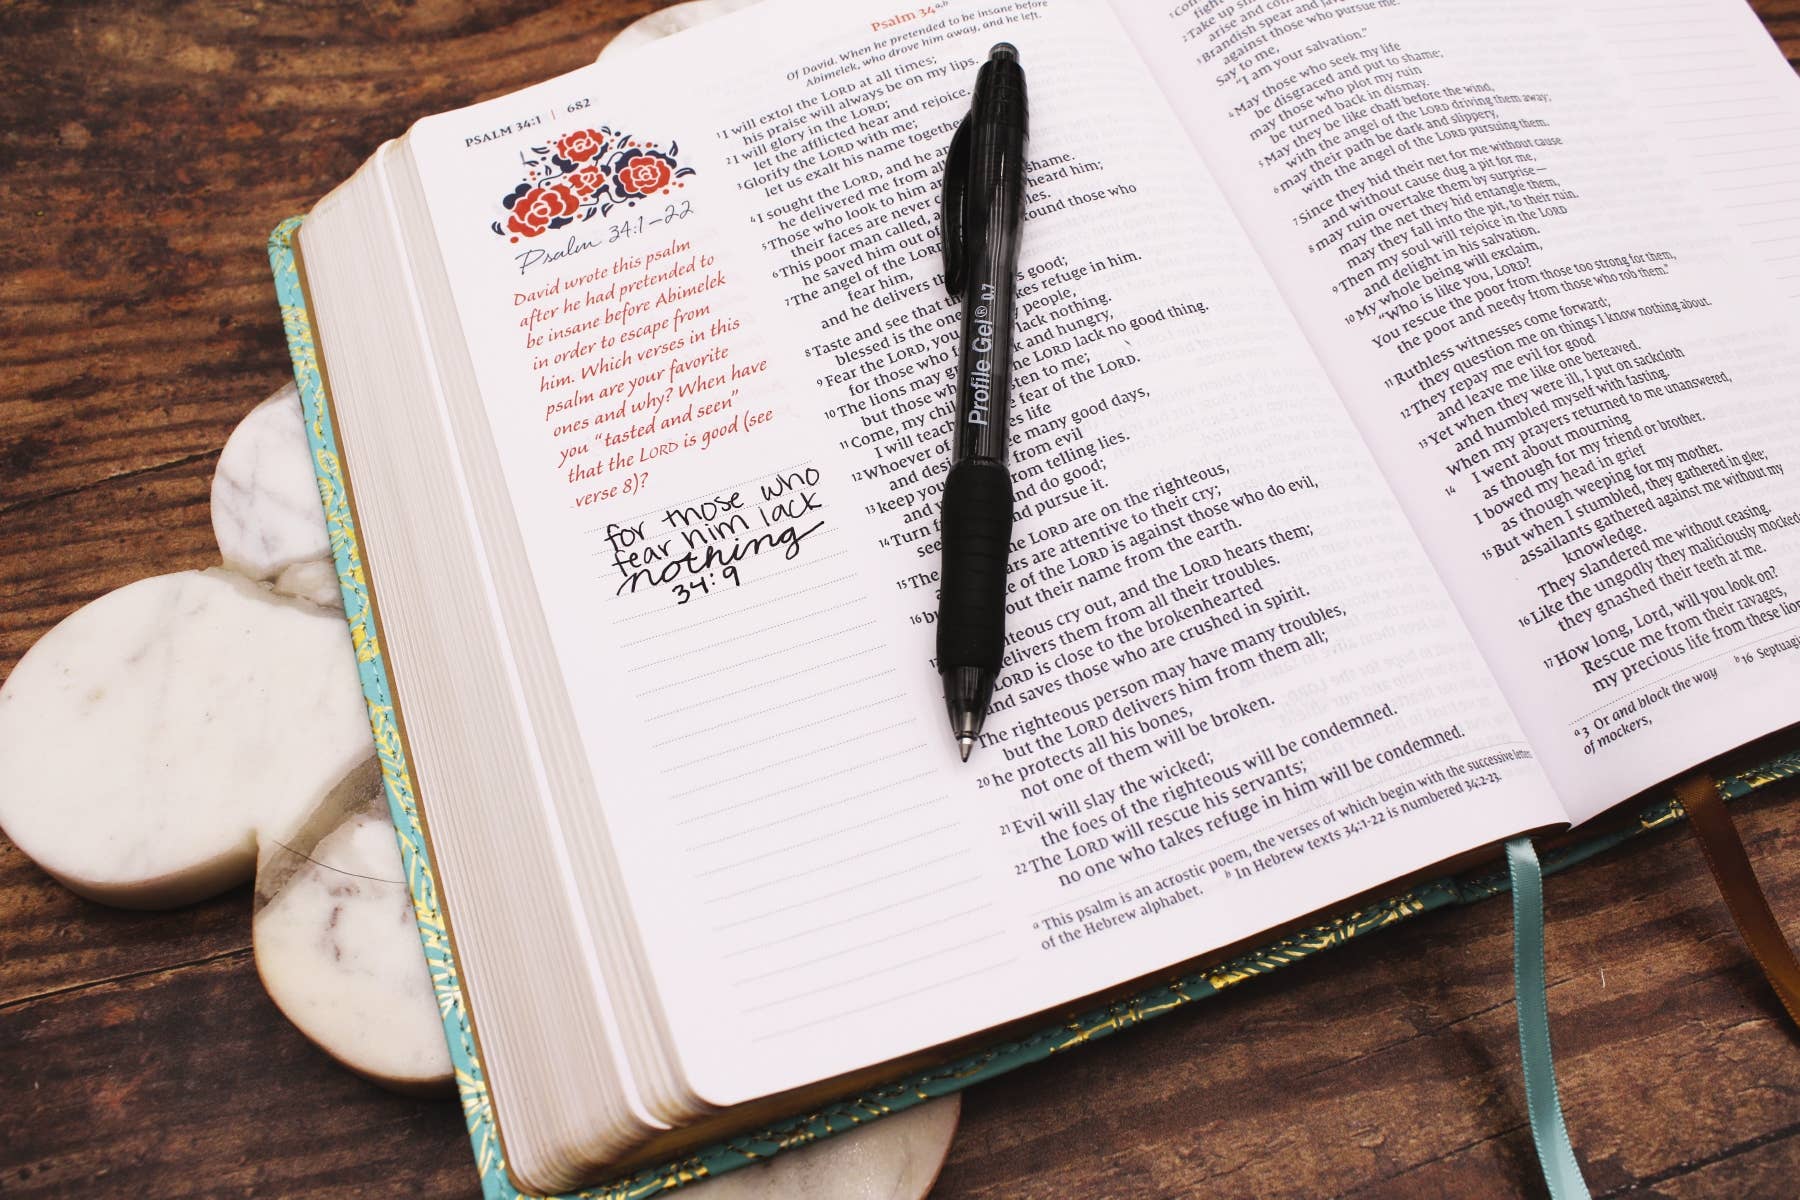 PSALM 34:1 | 682
Psalm 34:1–22
David wrote this psalm
after he had pretended to
be insane before Abimelek
in order to escape from
him. Which verses in this
psalm are your favorite
ones and why? When have
you “tasted and seen”
that the LORD is good (see
verse 8)?
for those who
fear him lack
nothing
34:9
Psalm 34a,b
Of David. When he pretended to be insane before
Abimelek, who drove him away, and he left.
1 I will extol the LORD at all times;
his praise will always be on my lips.
2 I will glory in the LORD;
let the afflicted hear and rejoice.
3 Glorify the LORD with me;
let us exalt his name together
4 I sought the LORD, and he
he delivered me from all
5 Those who look to him
their faces are never shame.
6 This poor man called, heard him;
he saved him out of
7 The angel of the LORD around those who
fear him,
and he delivers
8 Taste and see that good;
blessed is the one takes refuge in him.
9 Fear the LORD, you people,
for those who lack nothing.
10 The lions may and hungry,
but those the LORD lack no good thing.
11 Come, my listen to me;
I will teach fear of the LORD.
12 Whoever of life
and many good days,
13 keep your from evil
and from telling lies.
14 Turn and do good;
and pursue it.
15 The LORD are on the righteous,
are attentive to their cry;
16 of the LORD is against those who do evil,
out their name from the earth.
cry out, and the LORD hears them;
delivers them from all their troubles.
LORD is close to the brokenhearted
and saves those who are crushed in spirit.
The righteous person may have many troubles,
but the LORD delivers him from them all;
20 he protects all his bones,
not one of them will be broken.
21 Evil will slay the wicked;
the foes of the righteous will be condemned.
22 The LORD will rescue his servants;
no one who takes refuge in him will be condemned.
a This psalm is an acrostic poem, the verses of which begin with the successive letters
of the Hebrew alphabet. b In Hebrew texts 34:1-22 is numbered 34:2-23.
Profile Gel® 0.7
2 Take up
arise and
3 Brandish spear and
against those who pursue me.
Say to me,
“I am your salvation.”
4 May those who seek my life
be disgraced and put to shame;
may those who plot my ruin
be turned back in dismay.
5 May they be like chaff before the wind,
with the angel of the LORD driving them away;
6 may their path be dark and slippery,
with the angel of the LORD pursuing them.
7 Since they hid their net for me without cause
and without cause dug a pit for me,
8 may ruin overtake them by surprise—
may the net they hid entangle them,
may they fall into the pit, to their ruin.
9 Then my soul will rejoice in the LORD
and delight in his salvation.
10 My whole being will exclaim,
“Who is like you, LORD?
You rescue the poor from those too strong for them,
the poor and needy from those who rob them.”
11 Ruthless witnesses come forward;
they question me on things I know nothing about.
12 They repay me evil for good
and leave me like one bereaved.
13 Yet when they were ill, I put on sackcloth
and humbled myself with fasting.
When my prayers returned to me unanswered,
14 I went about mourning
as though for my friend or brother.
I bowed my head in grief
as though weeping for my mother.
15 But when I stumbled, they gathered in glee;
assailants gathered against me without my
knowledge.
They slandered me without ceasing.
16 Like the ungodly they maliciously mocked
they gnashed their teeth at me.
17 How long, Lord, will you look on?
Rescue me from their ravages,
my precious life from these
a 3 Or and block the way b 16
of mockers,